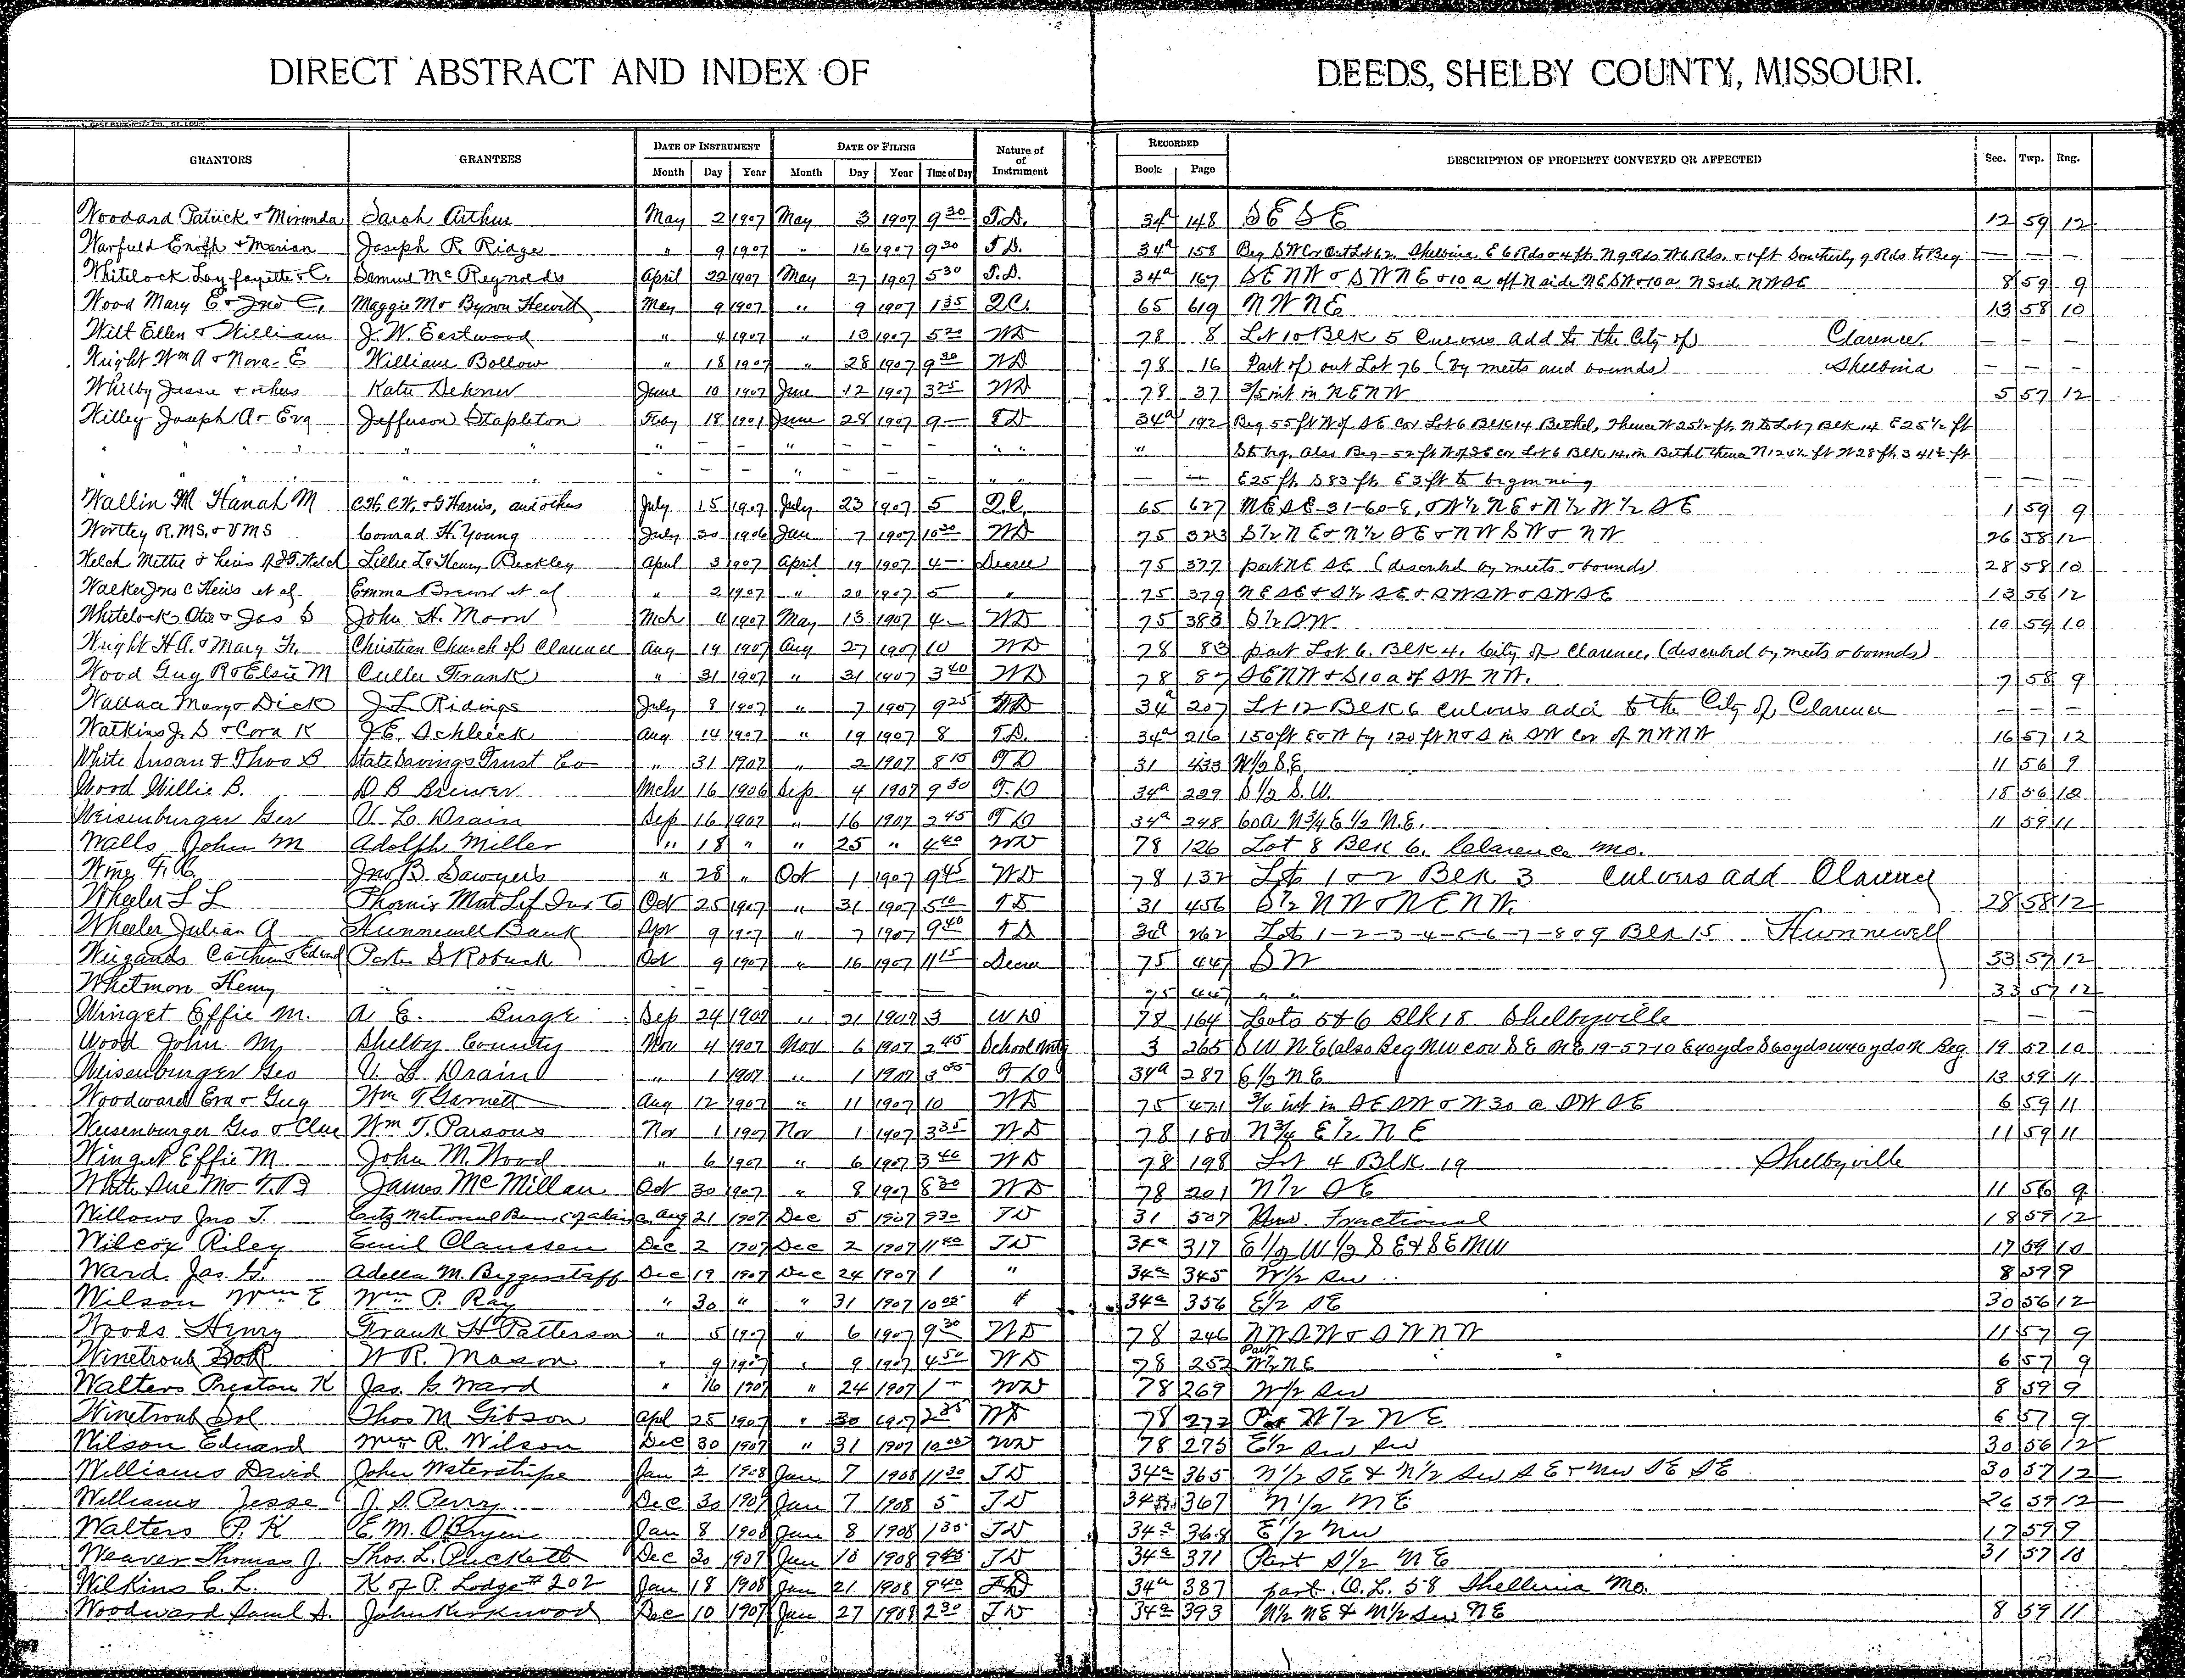 DIRECT ABSTRACT AND INDEX OF DEEDS, SHELBY COUNTY, MISSOURI.
GRANTORS GRANTEES DATE OF INSTRUMENT DATE OF FILING Nature of of Instrument RECORDED DESCRIPTION OF PROPERTY CONVEYED OR AFFECTED Sec. Twp. Rng.
Month Day Year Month Day Year Time of Day Book Page
Woodard Patrick & Miranda Sarah Arthur May 2 1907 May 3 1907 9 30 T.D. 34a 148 SE SE 12 59 12
Warfield Enoch & Marian Joseph R. Ridge " 9 1907 " 16 1907 9 30 T.D. 34a 158 Beg SW Cor Out Lot 62 Shelbina E 6 Rds & 4 ft. N 9 Rds W 6 Rds. & 1 ft Southerly 9 Rds to Beg — — —
Whitelock Layfayette & C. Samuel McReynolds April 22 1907 May 27 1907 5 30 T.D. 34a 167 SE NW & SW NE & 10 a off N side NE SW & 10 a N side NW SE 8 59 9
Wood Mary E & Jno C. Maggie M & Byron Hewitt May 9 1907 " 9 1907 1 35 Q.C. 65 619 NW NE 13 58 10
Wilt Ellen & William J. W. Eastwood " 4 1907 " 13 1907 5 20 WD 78 8 Lot 10 Blk 5 Culvers add to the City of Clarence — — —
Wright Wm A & Nora E William Bollow " 18 1907 " 28 1907 9 30 WD 78 16 Part of out Lot 76 (by meets and bounds) Shelbina — — —
Whitby Jessie & others Katie Dehner June 10 1907 June 12 1907 3 25 WD 78 37 3/5 int in NE NW 5 57 12
Willey Joseph A & Eva Jefferson Stapleton Feby 18 1901 June 28 1907 9 — TD 34a 192 Beg 55 ft W of SE Cor Lot 6 Blk 14 Bethel, thence W 25 1/2 ft. N to Lot 7 Blk 14 E 25 1/2 ft
" " " " " — — " — — — " " " St beg. also Beg 52 ft W of SE cor Lot 6 Blk 14 in Bethel thence N 124 1/2 ft W 28 ft S 41 1/2 ft
" " " " — — " — — — " " — — E 25 ft S 83 ft E 3 ft to beginning
Wallin M Hanah M C.H. C.W. & G Harris, and others July 15 1907 July 23 1907 5 Q.C. 65 627 NE SE 31-60-8, & W 1/2 NE & N 1/2 W 1/2 SE 1 59 9
Wortley R.M.S. & V M S Conrad H. Young July 30 1906 Jan 7 1907 10 30 WD 75 323 S 1/2 NE & N 1/2 SE & NW SW & NW 26 58 12
Welch Mettie & heirs of J.F. Welch Lillie L & Henry Beckley April 3 1907 April 19 1907 4 — Decree 75 377 part NE SE (described by meets & bounds) 28 58 10
Walker Jno C Heirs et al Emma Brewer et al " 2 1907 " 20 1907 5 " 75 379 NE SE & S 1/2 SE & SW SW & SW SE 13 56 12
Whitelock Ota & Jas S John H. Moore Mch 4 1907 May 13 1907 4 — WD 75 383 S 1/2 SW 10 59 10
Wright H A. & Mary H. Christian Church of Clarence Aug 19 1907 Aug 27 1907 10 WD 78 83 part Lot 6. Blk 4. City of Clarence, (described by meets & bounds)
Wood Guy R & Elsie M Culler Frank " 31 1907 " 31 1907 3 40 WD 78 87 SE NW & S 10 a of SW NW. 7 58 9
Wallace Marg & Dick J. L. Ridings July 8 1907 " 7 1907 9 25 TD 34a 207 Lot 12 Blk 6 Culvers add to the City of Clarence — — —
Watkins J. S & Cora K J. E. Schleick Aug 14 1907 " 19 1907 8 T.D. 34a 216 150 ft E & W by 120 ft N & S in SW Cor of NW NW 16 57 12
White Susan & Thos B State Savings Trust Co " 31 1907 " 2 1907 8 15 TD 31 433 W 1/2 S.E. 11 56 9
Wood Willie B. D B Brewer Mch 16 1906 Sep 4 1907 9 30 T.D 34a 229 S 1/2 S.W. 18 56 12
Weisenburger Geo V. L. Drain Sep 16 1907 " 16 1907 2 45 TD 34a 248 60 a N 3/4 E 1/2 N.E. 11 59 11
Walls John M Adolph Miller " 18 " " 25 " 4 40 WD 78 126 Lot 8 Blk 6. Clarence Mo.
Wing F. A. Jno B. Sawyers " 28 " Oct 1 1907 9 45 WD 78 132 Lots 1 & 2 Blk 3 Culvers add Clarence
Wheeler L L Phoenix Mut Lif Ins Co Oct 25 1907 " 31 1907 5 10 TD 31 456 S 1/2 NW & NE NW. 28 58 12
Wheeler Julian A Hunnewell Bank Apr 9 1907 " 7 1907 9 40 TD 34a 262 Lots 1-2-3-4-5-6-7-8 & 9 Blk 15 Hunnewell
Weigands Catherine & Edward Porter S Roback Oct 9 1907 " 16 1907 11 15 Decree 75 447 SW 33 57 12
Whitmon Henry " " — — — — — 75 447 " " 33 57 12
Winget Effie M. A E. Burge Sep 24 1907 " 21 1907 3 WD 78 164 Lots 5 & 6 Blk 18 Shelbyville — — —
Wood John M Shelby County Nov 4 1907 Nov 6 1907 2 45 School Mtg 3 265 SW NE (also Beg NW cor SE NE 19-57-10 E 40 yds S 60 yds W 40 yds N Beg 19 57 10
Weisenburger Geo V. L. Drain " 1 1907 " 1 1907 3 35 TD 34a 287 E 1/2 NE 13 59 11
Woodward Eva & Guy Wm T Garnett Aug 12 1907 " 11 1907 10 WD 75 471 3/6 int in SE SW & W 30 a SW SE 6 59 11
Weisenburger Geo & Clue Wm T. Parsons Nov 1 1907 Nov 1 1907 3 35 WD 78 180 N 3/4 E 1/2 NE 11 59 11
Winget Effie M John M. Wood " 6 1907 " 6 1907 3 40 WD 78 198 Lot 4 Blk 19 Shelbyville
White Sue M & T. B James McMillan Oct 30 1907 " 8 1907 8 30 WD 78 201 N 1/2 SE 11 56 9
Willows Jno T. Citz National Bank of Adair Co. Aug 21 1907 Dec 5 1907 9 30 TD 31 507 Fractional 18 59 12
Wilcox Riley Emil Claussen Dec 2 1907 Dec 2 1907 11 40 TD 34a 317 E 1/2 W 1/2 SE & SE NW 17 59 10
Ward Jas. G. Adella M. Biggerstaff Dec 19 1907 Dec 24 1907 1 " 34a 345 W 1/2 SW 8 59 9
Wilson Wm E Wm P. Ray " 30 " " 31 1907 10 05 " 34a 356 E 1/2 SE 30 56 12
Woods Henry Frank H Patterson " 5 1907 " 6 1907 9 30 WD 78 246 NW SW & SW NW 11 57 9
Winetroub Sol R W R. Mason " 9 1907 " 9 1907 4 50 WD 78 252 Part W 1/2 NE 6 57 9
Walters Preston K Jas. G Ward " 16 1907 " 24 1907 1 — WD 78 269 W 1/2 SW 8 59 9
Winetroub Sol Thos M Gibson Apl 25 1907 " 30 1907 2 35 WD 78 272 Par W 1/2 NE 6 57 9
Wilson Edward Wm R. Wilson Dec 30 1907 " 31 1907 10 00 WD 78 275 E 1/2 SW SW 30 56 12
Williams David John Waterstripe Jan 2 1908 Jan 7 1908 11 30 TD 34a 365 N 1/2 SE & N 1/2 SW SE & NW SE SE 30 57 12
Williams Jesse J. S. Perry Dec 30 1907 Jan 7 1908 5 TD 34a 367 N 1/2 NE 26 59 12
Walters P. K E. M. OBryen Jan 8 1908 Jan 8 1908 1 30 TD 34a 368 E 1/2 NW 17 59 9
Weaver Thomas J Thos. L. Puckett Dec 30 1907 Jan 10 1908 9 45 TD 34a 371 Part S 1/2 NE 31 57 10
Wilkins C. L. K of P. Lodge # 202 Jan 18 1908 Jan 21 1908 9 40 TD 34a 387 part. O. L. 58 Shelbina Mo.
Woodward Saml S. John Kirkwood Dec 10 1907 Jan 27 1908 2 30 TD 34a 393 N 1/2 NE & N 1/2 SW NE 8 59 11